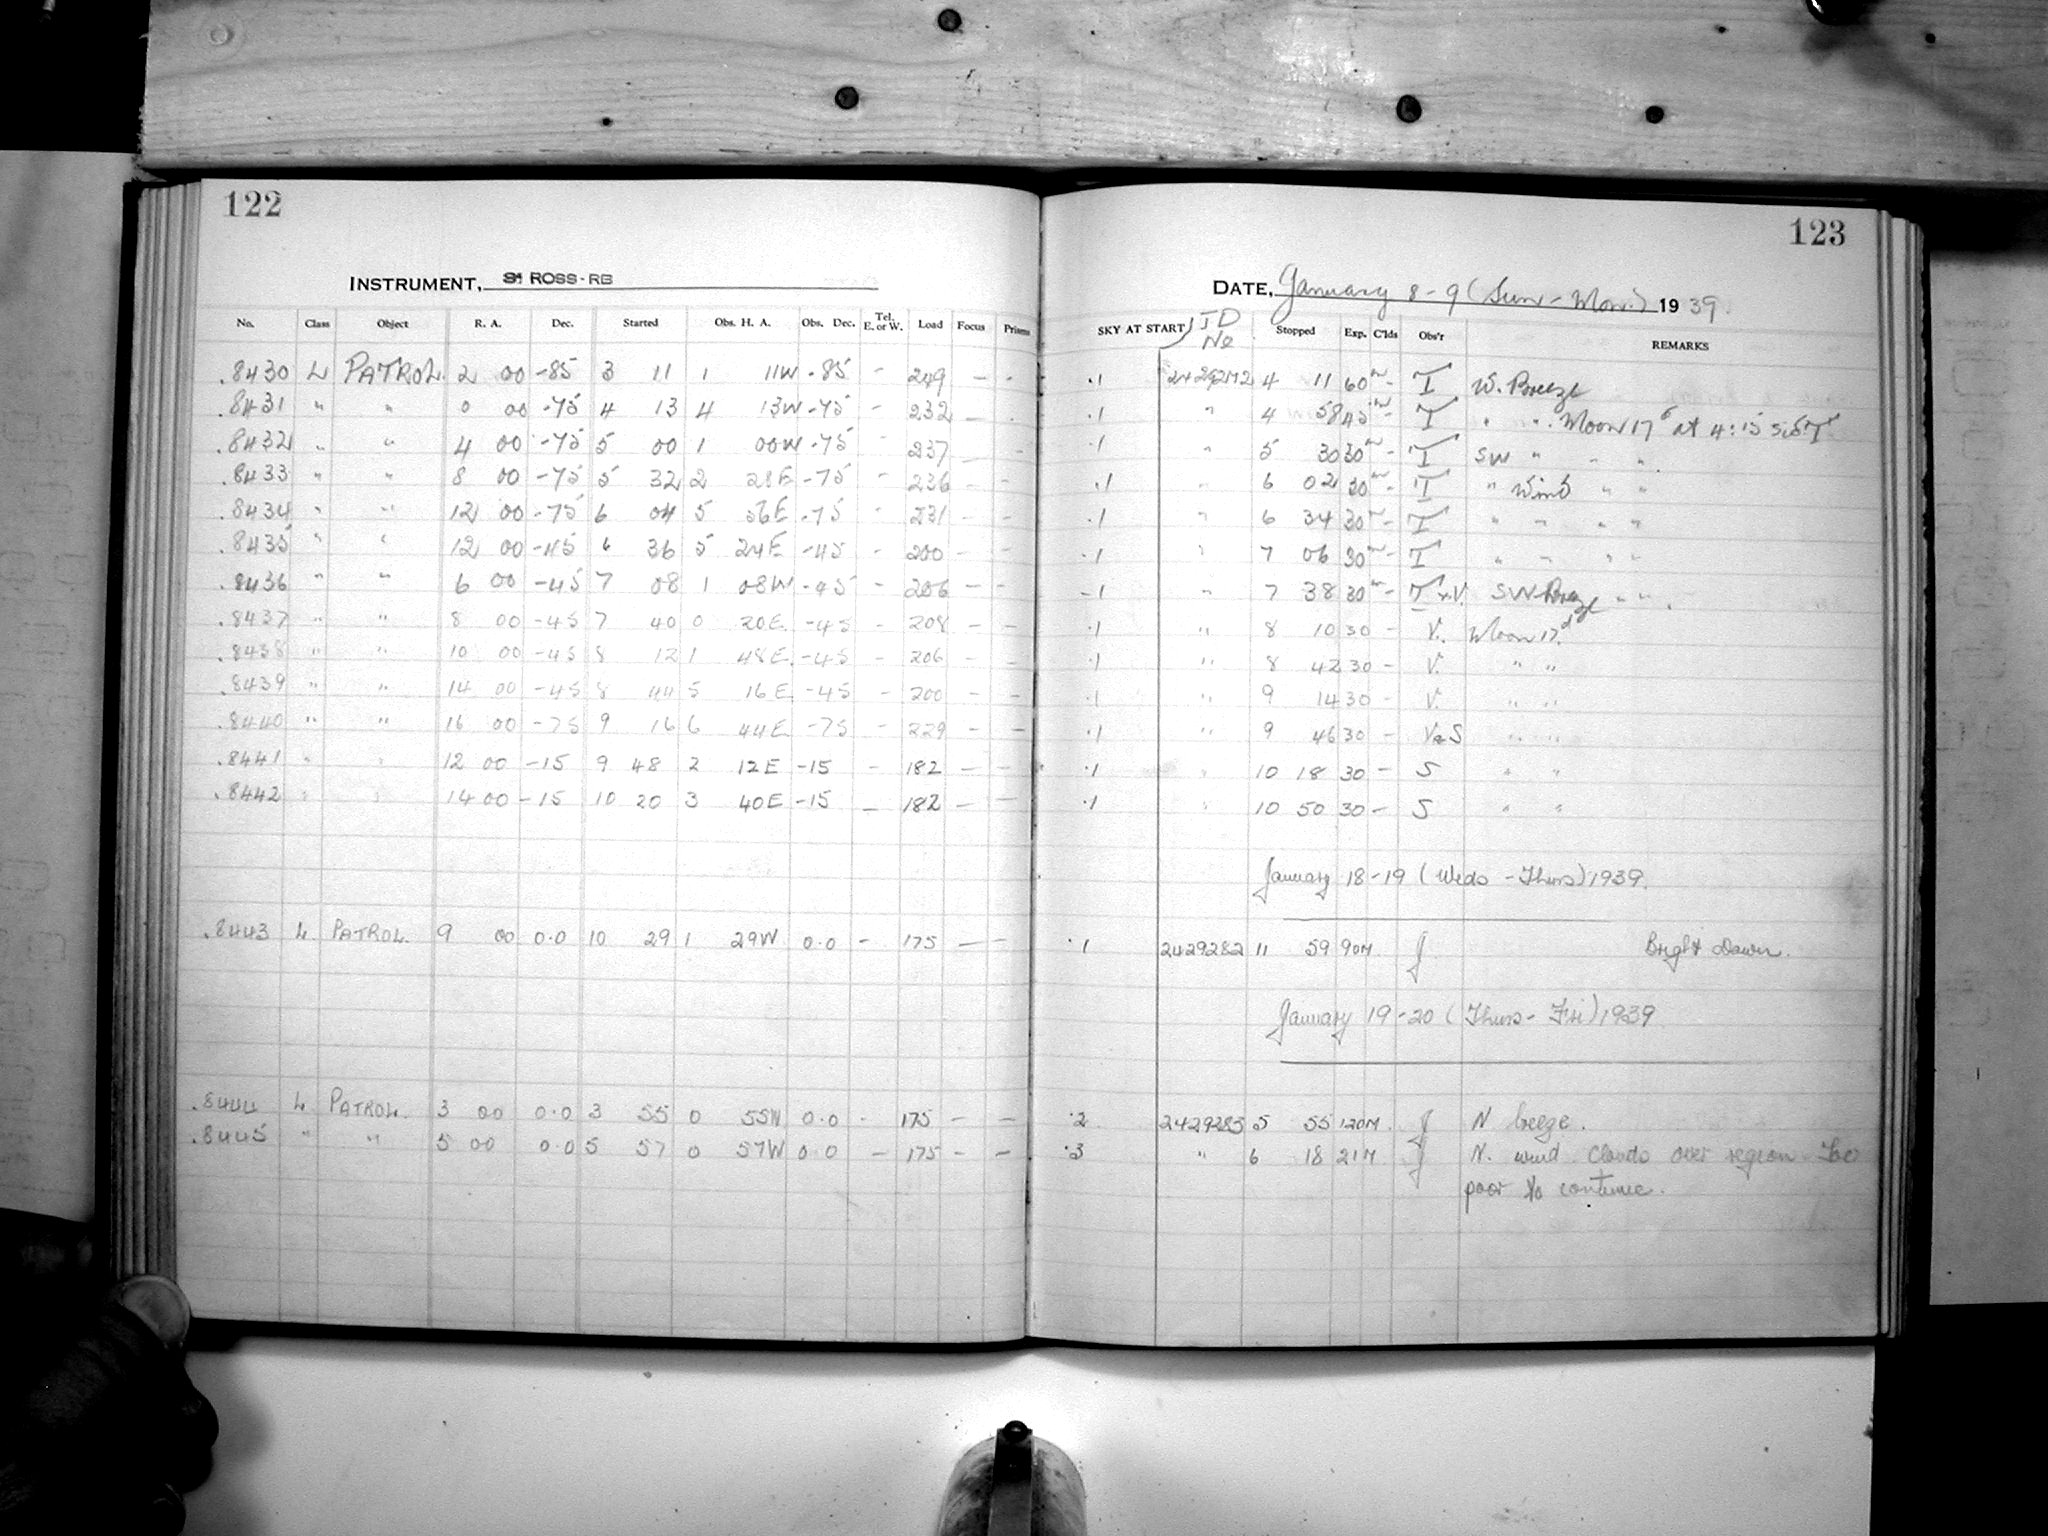 122
INSTRUMENT, ROSS-RB
No. Class Object R. A. Dec. Started Obs. H. A. Obs. Dec. Tel. E. or W. Load Focus Prisms
.8430 L PATROL 2 00 -85 3 11 1 11W -85 - 249 - -
.8431 " " 0 00 -75 4 13 4 13W -75 - 232 - -
.8432 " " 4 00 -75 5 00 1 00W -75 - 237 - -
.8433 " " 8 00 -75 5 32 2 28E -75 - 236 - -
.8434 " " 12 00 -75 6 04 5 56E -75 - 231 - -
.8435 " " 12 00 -45 6 36 5 24E -45 - 200 - -
.8436 " " 6 00 -45 7 08 1 08W -45 - 206 - -
.8437 " " 8 00 -45 7 40 0 20E -45 - 208 - -
.8438 " " 10 00 -45 8 12 1 48E -45 - 206 - -
.8439 " " 14 00 -45 8 44 5 16E -45 - 200 - -
.8440 " " 16 00 -75 9 16 6 44E -75 - 229 - -
.8441 " " 12 00 -15 9 48 2 12E -15 - 182 - -
.8442 " " 14 00 -15 10 20 3 40E -15 - 182 - -
.8443 L PATROL. 9 00 0.0 10 29 1 29W 0.0 - 175 - -
.8444 L PATROL. 3 00 0.0 3 55 0 55W 0.0 - 175 - -
.8445 " " 5 00 0.0 5 57 0 57W 0.0 - 175 - -
123
DATE, January 8-9 (Sun-Mon.) 1939.
SKY AT START JD No Stopped Exp. C'lds Obs'r REMARKS
.1 2429272 4 11 60m - T W. Breeze
.1 " 4 58 45m - T " ". Moon 17d at 4:15 SidT
.1 " 5 30 30m - T SW " " "
.1 " 6 02 30m - T " Wind " "
.1 " 6 34 30m - T " " " "
.1 " 7 06 30m - T " " " "
.1 " 7 38 30m - T+V. SW Breeze " "
.1 " 8 10 30 - V. Moon 17d
.1 " 8 42 30 - V. " "
.1 " 9 14 30 - V. " "
.1 " 9 46 30 - V+S " "
.1 " 10 18 30 - S " "
.1 " 10 50 30 - S " "
January 18-19 (Weds - Thurs) 1939.
.1 2429282 11 59 90M J Bright Dawn.
January 19-20 (Thurs - Fri) 1939
.2 2429283 5 55 120M J N breeze.
.3 " 6 18 21M J N. wind. Clouds over region. Too
poor to continue.